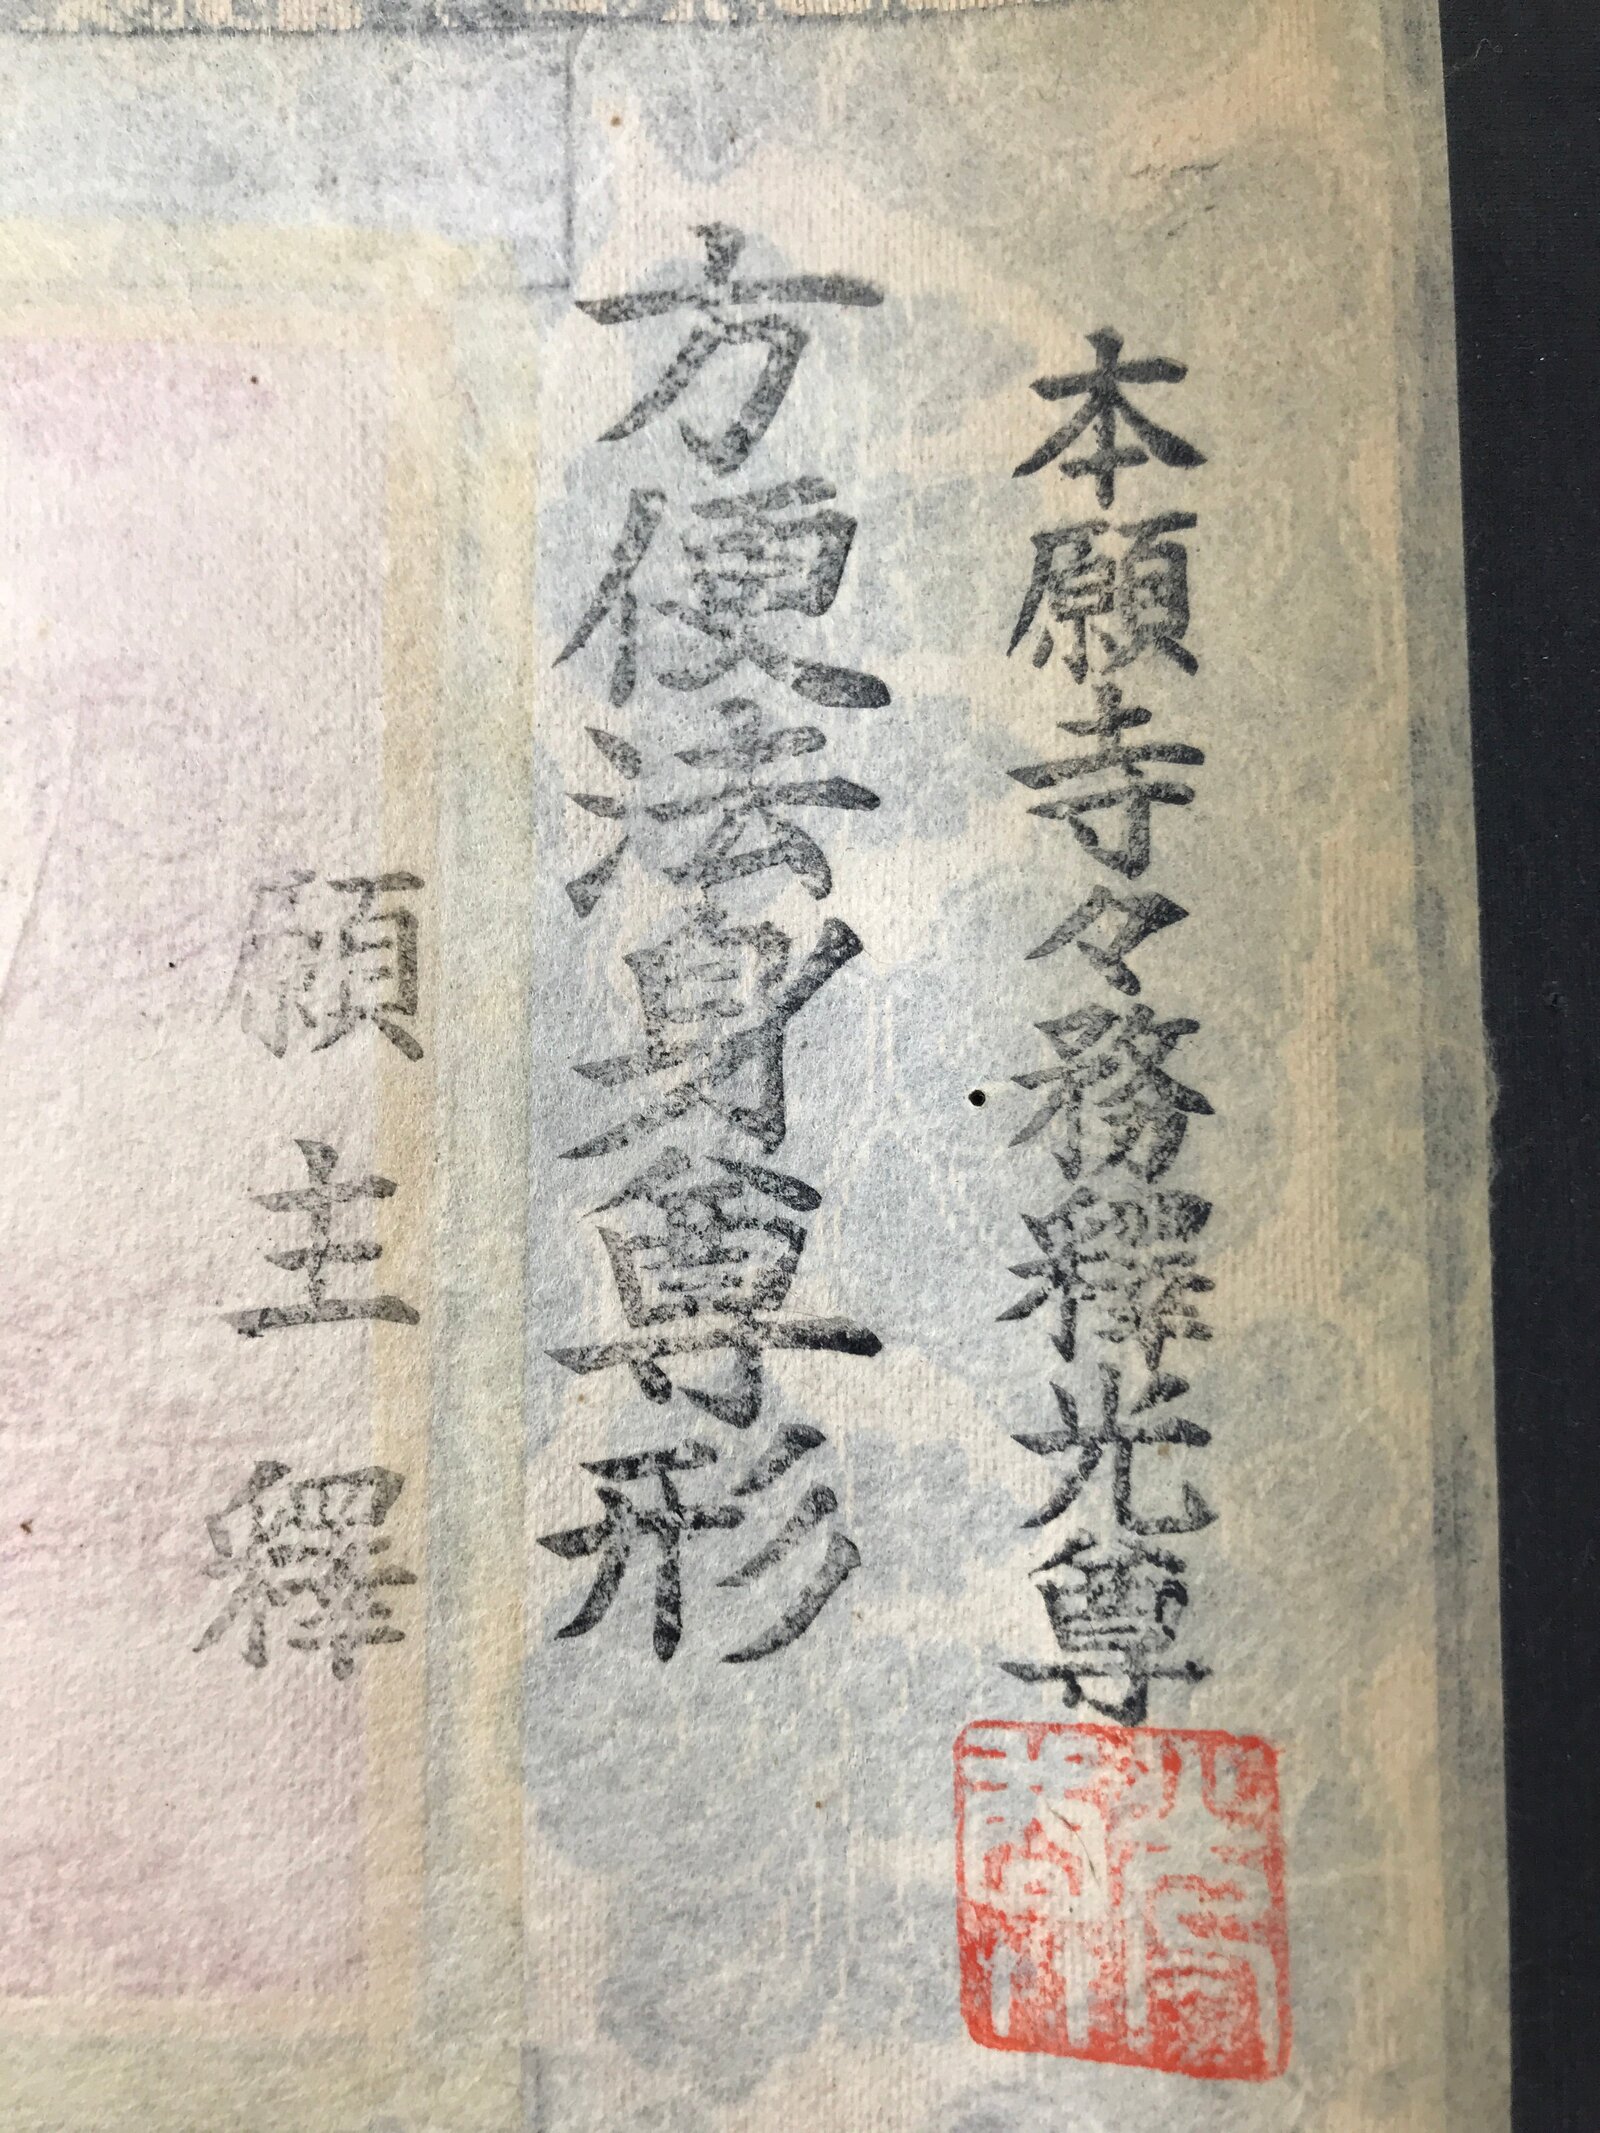 本願寺々務釋光尊
方便法身尊形
願主釋